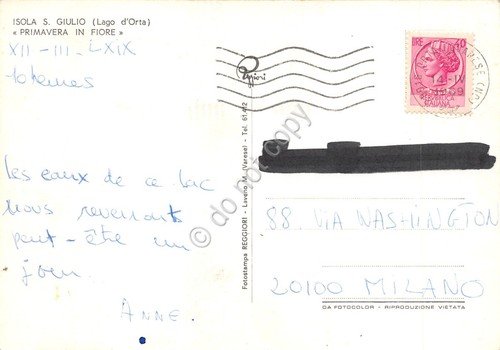 ISOLA S. GIULIO (Lago d'Orta)
« PRIMAVERA IN FIORE »
XII - III - LXIX
Les eaux de ce lac
nous reverront
peut-être un
jour.
ANNE.
Reggiori
Fotostampa REGGIORI - Laveno M. (Varese) - Tel. 61.412
LIRE 40
REPUBBLICA
ITALIANA
88. VIA WASHINGTON
20100 MILANO
GA FOTOCOLOR - RIPRODUZIONE VIETATA
do not copy